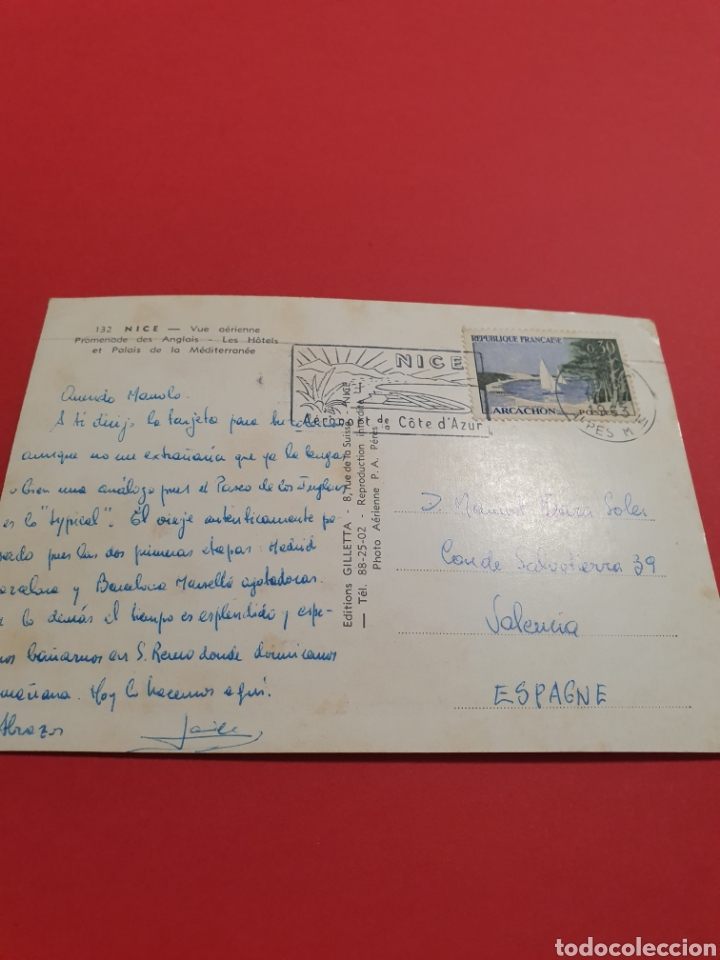 132 NICE — Vue aérienne
Promenade des Anglais - Les Hôtels
et Palais de la Méditerranée
Querido Manolo.
A ti dirijo la tarjeta para tu
aunque no me extrañaría que ya la tengas
o bien una análoga pues el Paseo de los Ingleses
es lo "typical". El viaje auténticamente pe-
sado pues las dos primeras etapas Madrid
Barcelona y Barcelona Marsella agotadoras.
lo demás el tiempo es esplendido y espe-
mos bañarnos en S. Remo donde dormimos
mañana. Hoy lo hacemos aquí.
Abrazos
Editions GILLETTA - 8, Rue de la Suisse - NICE
— Tél. 88-25-02 - Reproduction interdite
Photo Aérienne P. A. Pérès
NICE
Aéroport de la Côte d'Azur
REPUBLIQUE FRANÇAISE
0,30
ARCACHON
POSTES
1963
ALPES M
D. Manuel Soler
Conde Salvatierra 39
Valencia
ESPAGNE
todocoleccion